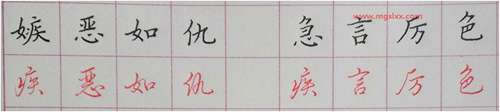 www.mgxlxx.com
嫉恶如仇 急言厉色
疾恶如仇 疾言厉色